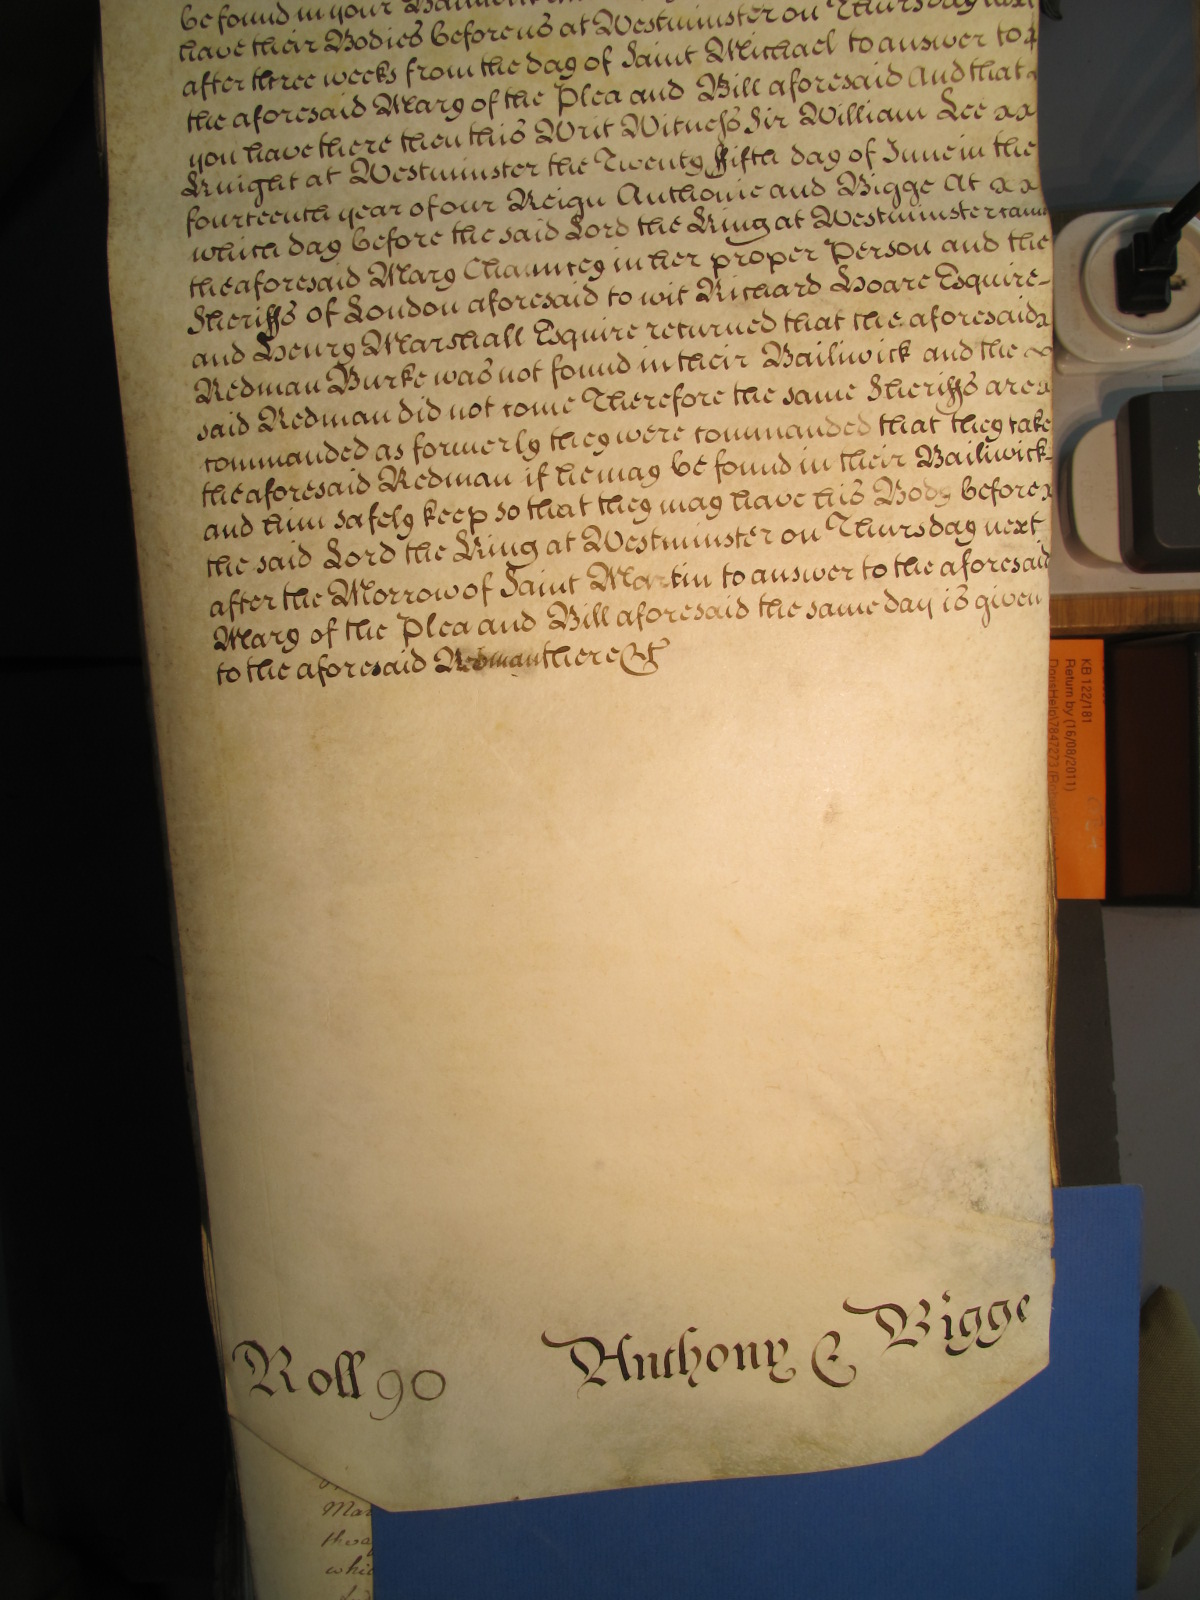 be found in your Bailiwick
have their Bodies before us at Westminster on Thursday next
after three weeks from the day of Saint Michael to answer to
the aforesaid Mary of the Plea and Bill aforesaid And that
you have there then this Writ Witness Sir William Lee
Knight at Westminster the Twenty ffifth day of June in the
fourteenth year of our Reign Anthonie and Bigge At
which day before the said Lord the King at Westminster came
the aforesaid Mary Chauncey in her proper Person and the
Sheriffs of London aforesaid to wit Richard Hoare Esquire
and Henry Marshall Esquire returned that the aforesaid
Redman Burke was not found in their Bailiwick and the
said Redman did not come Therefore the same Sheriffs are
commanded as formerly they were commanded that they take
the aforesaid Redman if he may be found in their Bailiwick
and him safely keep so that they may have his Body before
the said Lord the King at Westminster on Thursday next
after the Morrow of Saint Martin to answer to the aforesaid
Mary of the Plea and Bill aforesaid the same day is given
to the aforesaid Redman there &c
Roll 90 Anthony & Bigge
KB 122/181
Return by (16/08/2011)
Mar
thoa
whic